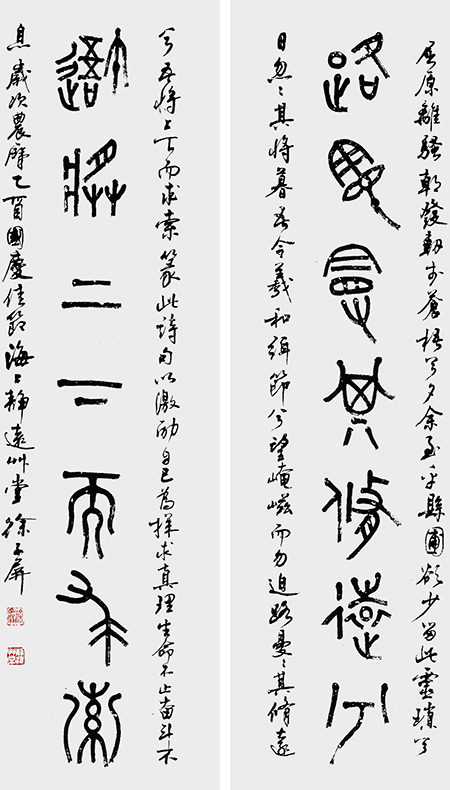 屈原離騷朝發軔於蒼梧兮夕余至乎縣圃欲少留此靈瑣兮
路曼曼其脩遠兮
日忽〻其將暮吾令羲和弭節兮望崦嵫而勿迫路曼〻其脩遠
兮吾將上下而求索篆此詩句以激勵自己為探求真理生命不止奮斗不
吾將上下而求索
息歲次農曆乙酉國慶佳節海上靜遠艸堂徐子屏